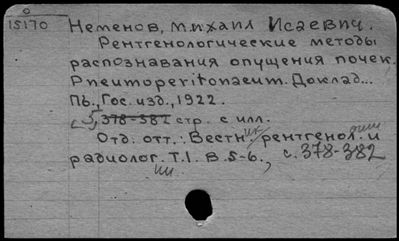 0
15170 Неменов, Михаил Исаевич.
Рентгенологические методы
распознавания опущения почек.
Pneumoperitonaeum. Доклад...
Пб., Гос. изд., 1922.
с 5, 378-382 стр. с илл.
Отд. отт.: Вестн. рентгенол. и
радиолог. Т.I. В 5-6., с. 378-382